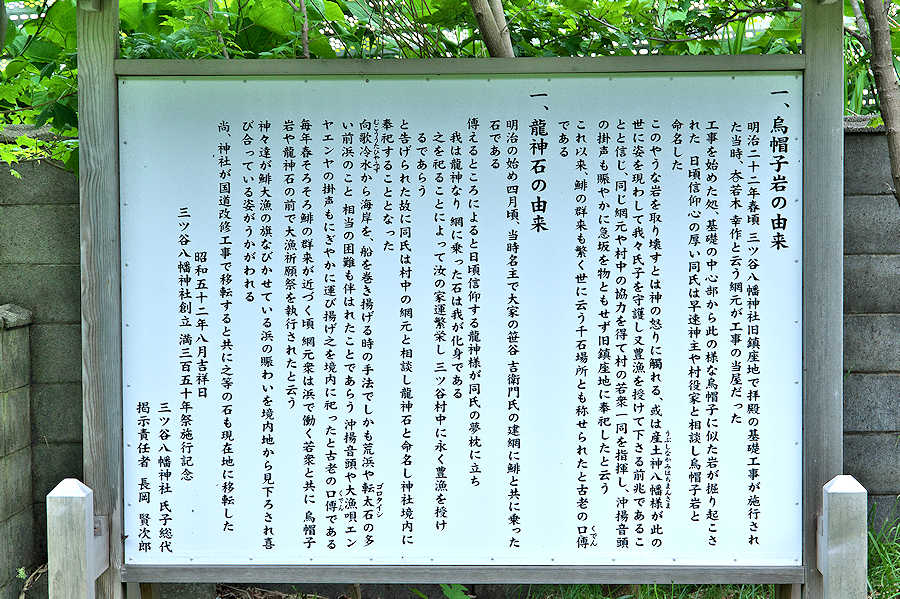 一、烏帽子岩の由来
明治二十二年春頃 三ツ谷八幡神社旧鎮座地で拝殿の基礎工事が施行され
た当時、杢若木 幸作と云う網元が工事の当屋だった
工事を始めた処、基礎の中心部から此の様な烏帽子に似た岩が掘り起こさ
れた 日頃信仰心の厚い同氏は早速神主や村役家と相談し烏帽子岩と
命名した
このやうな岩を取り壊すとは神の怒りに觸れる、或は産土神八幡様が此の
うぶしなかみはちまんさま
世に姿を現わして我々氏子を守護し又豊漁を授けて下さる前兆であるこ
とと信じ、同じ網元や村中の協力を得て村の若衆一同を指揮し、沖揚音頭
の掛声も賑やかに急坂を物ともせず旧鎮座地に奉祀したと云う
これ以来、鯡の群来も繁く世に云う千石場所とも称せられたと古老の口傳
くでん
である
一、龍神石の由来
明治の始め四月頃、当時名主で大家の笹谷 吉衛門氏の建網に鯡と共に乗った
石である
傳えるところによると日頃信仰する龍神様が同氏の夢枕に立ち
我は龍神なり 網に乗った石は我が化身である
之を祀ることによって汝の家運繁栄し 三ツ谷村中に永く豊漁を授け
るであらう
と告げられた故に同氏は村中の網元と相談し龍神石と命名し神社境内に
奉祀することとなった
向歌冷水から海岸を、船を巻き揚げる時の手法でしかも荒浜や転太石の多
ゴロタイシ
い前浜のこと 相当の困難も伴はれたことであらう 沖揚音頭や大漁唄エン
ヤエンヤの掛声もにぎやかに運び揚げ之を境内に祀ったと古老の口傳である
くでん
毎年春そろそろ鯡の群来が近づく頃 網元衆は浜で働く若衆と共に 烏帽子
岩や龍神石の前で大漁祈願祭を執行されたと云う
神々達が鯡大漁の旗なびかせている浜の賑わいを境内地から見下ろされ喜
び合っている姿がうかがわれる
尚、神社が国道改修工事で移転すると共に之等の石も現在地に移転した
昭和五十二年八月吉祥日
三ツ谷八幡神社創立 満三百五十年祭施行記念
三ツ谷八幡神社 氏子総代
掲示責任者 長岡 賢次郎